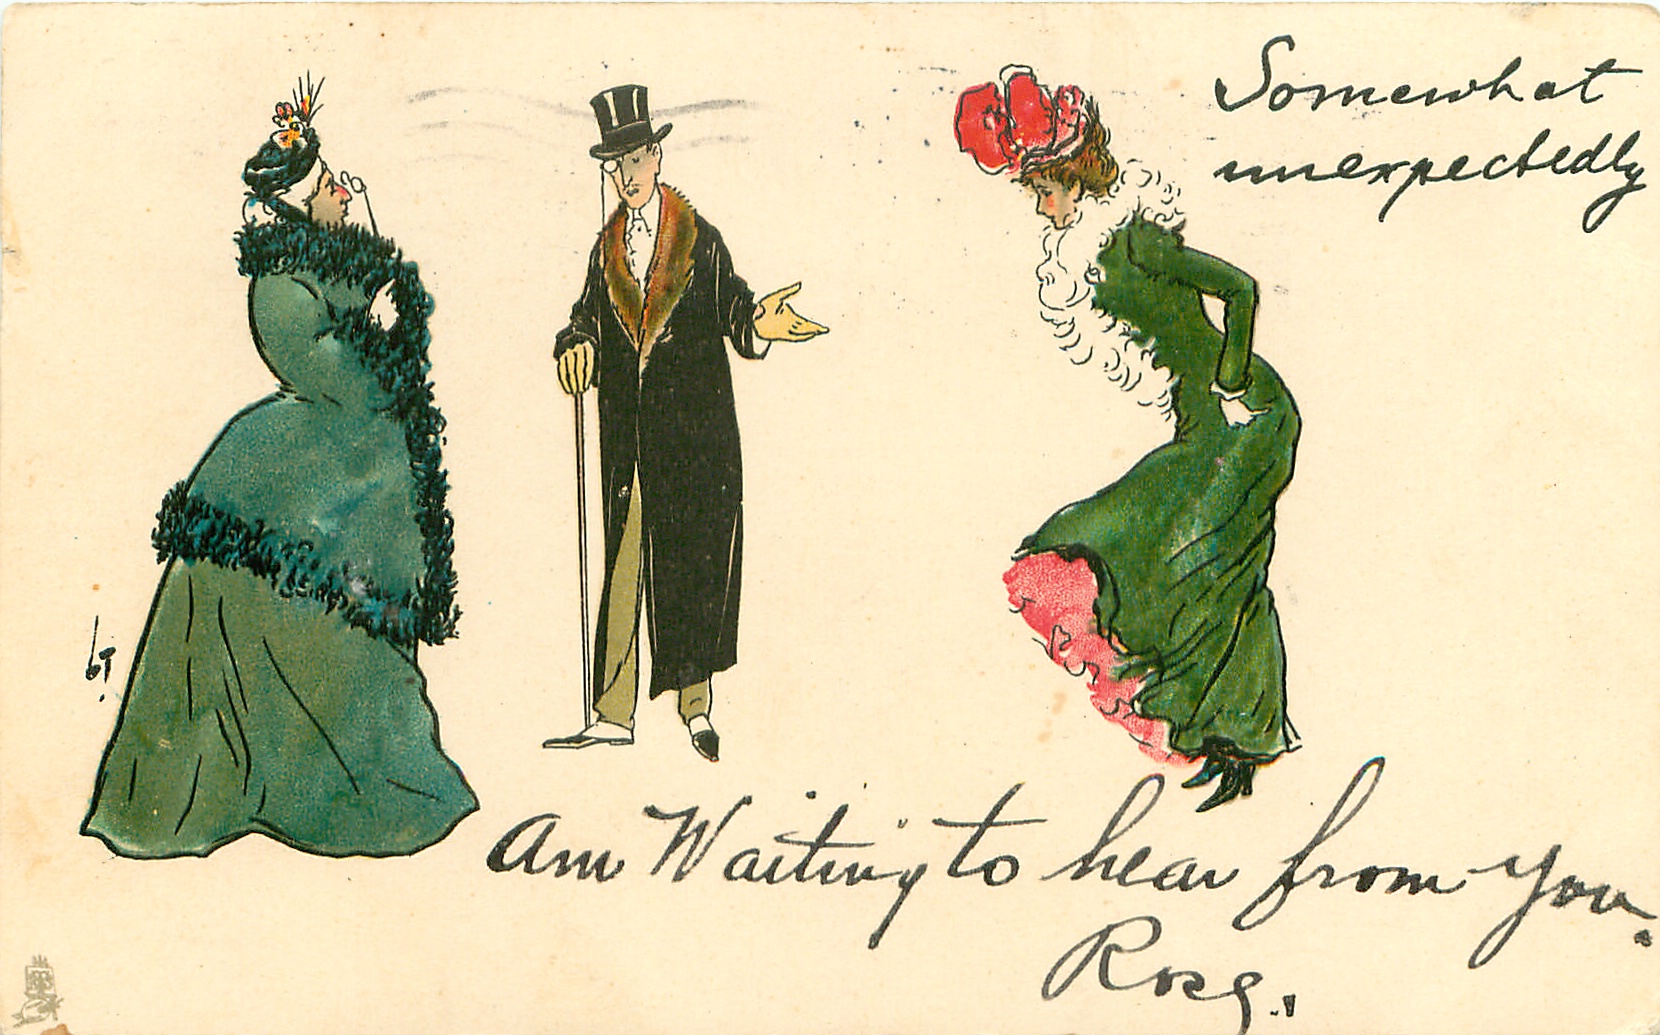 Somewhat
unexpectedly
Am Waiting to hear from you.
Rose.